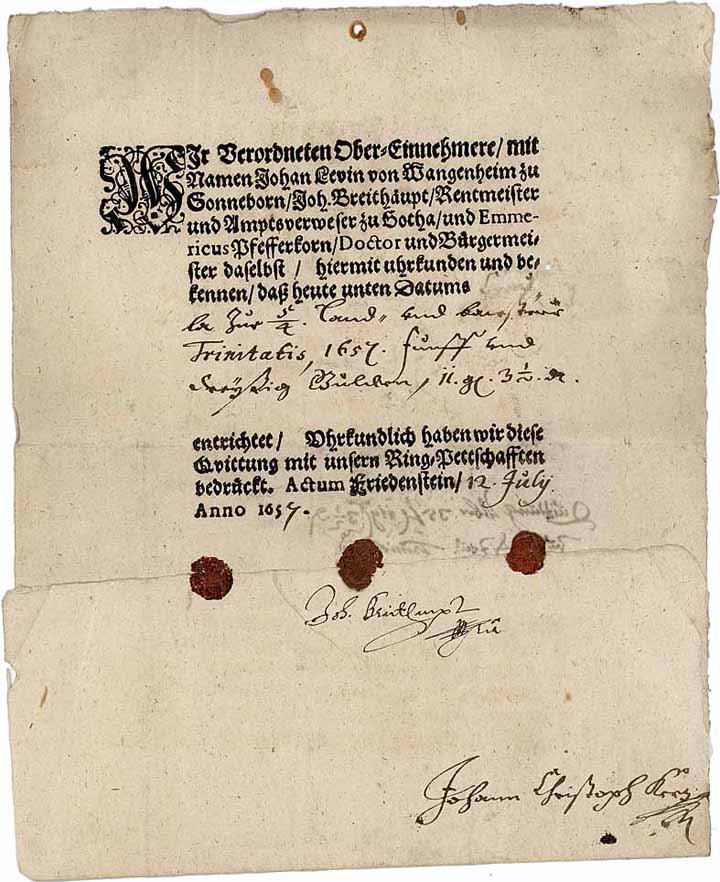 WIr Verordneten Ober-Einnehmere/ mit
Namen Johan Levin von Wangenheim zu
Sonneborn/ Joh. Breithäupt/ Rentmeister
und Amptsverweser zu Gotha/ und Emme-
ricus Pfefferkorn/ Doctor und Bürgermei-
ster daselbst / hiermit uhrkunden und be-
kennen/ daß heute unten Datums
zur Land- und
Trinitatis, 1657. funff und
dreyßig Gülden, 11. gr. 3½. d.
entrichtet/ Uhrkundlich haben wir diese
Qvittung mit unsern Ring-Pettschafften
bedrückt. Actum Friedenstein/ 12. July
Anno 1657.
Joh. Breithaupt
Johann Christoph